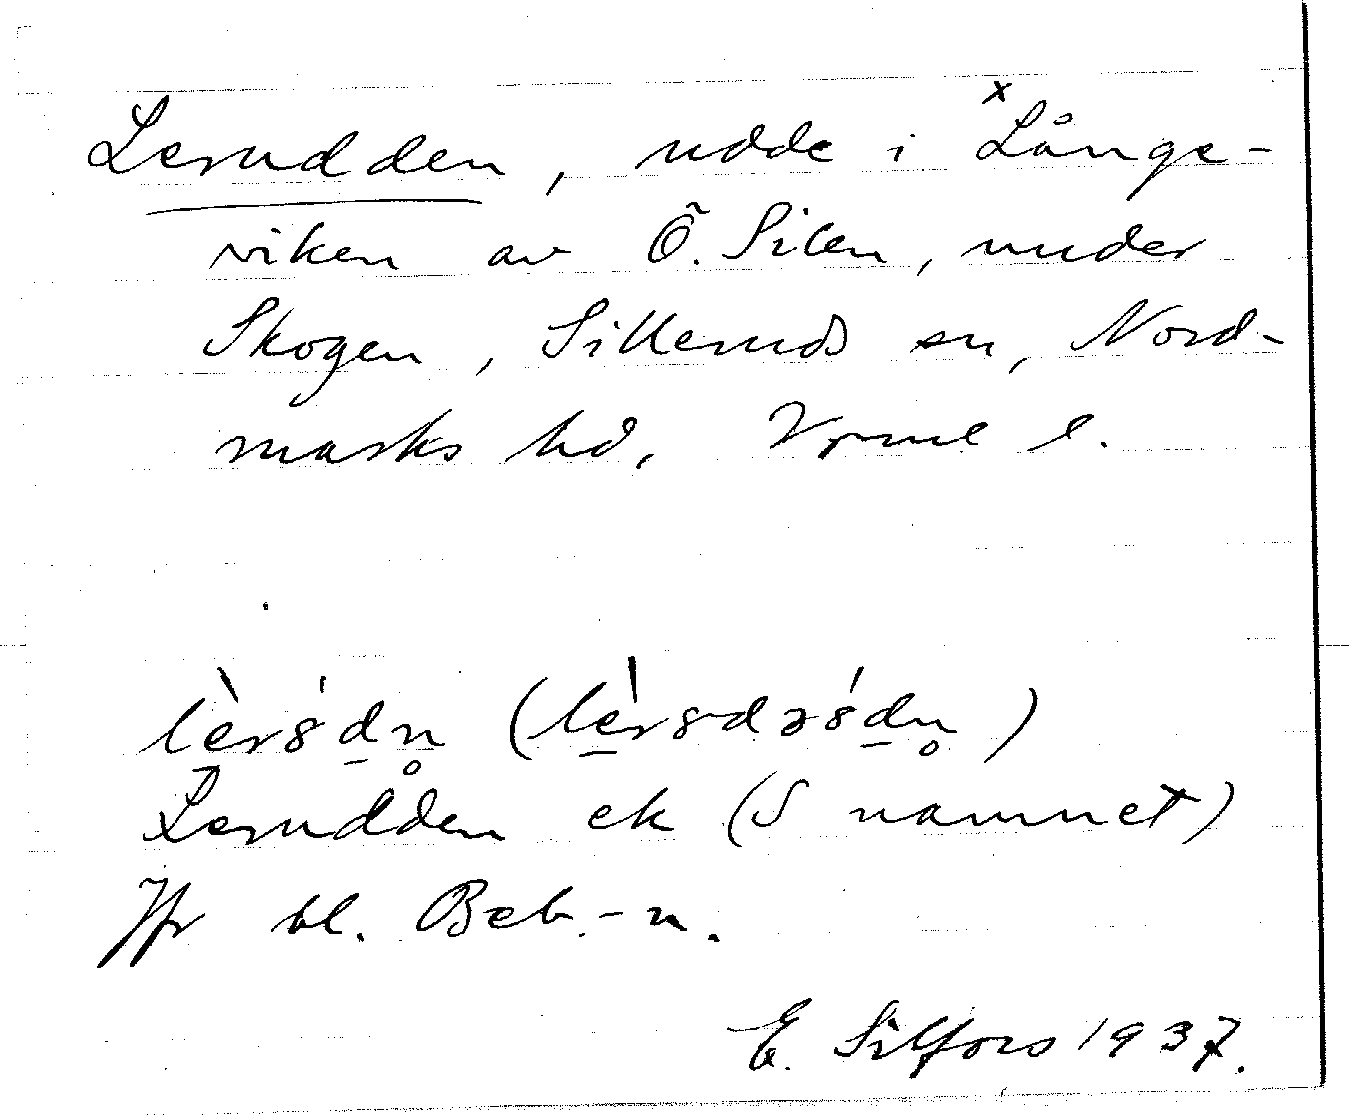 Lerudden, udde i ˣLånge-
viken av Ö. Silen, under
Skogen, Silleruds sn, Nord-
marks hd, Vrml l.
lèrs̀dn (lèrsdəs̀dn)
Lerudden ek (S namnet)
Jfr bl. Beb.-n.
E. Silfors 1937.